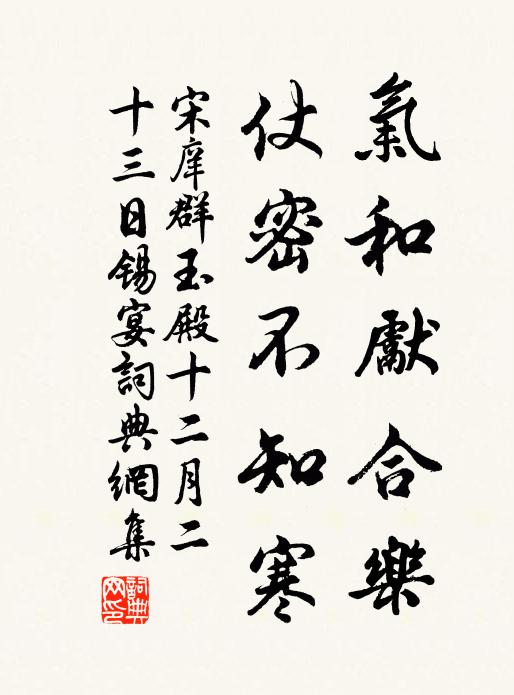 氣和獻合樂
仗密不知寒
宋庠群玉殿十二月二
十三日錫宴詞典網集
詞典網印